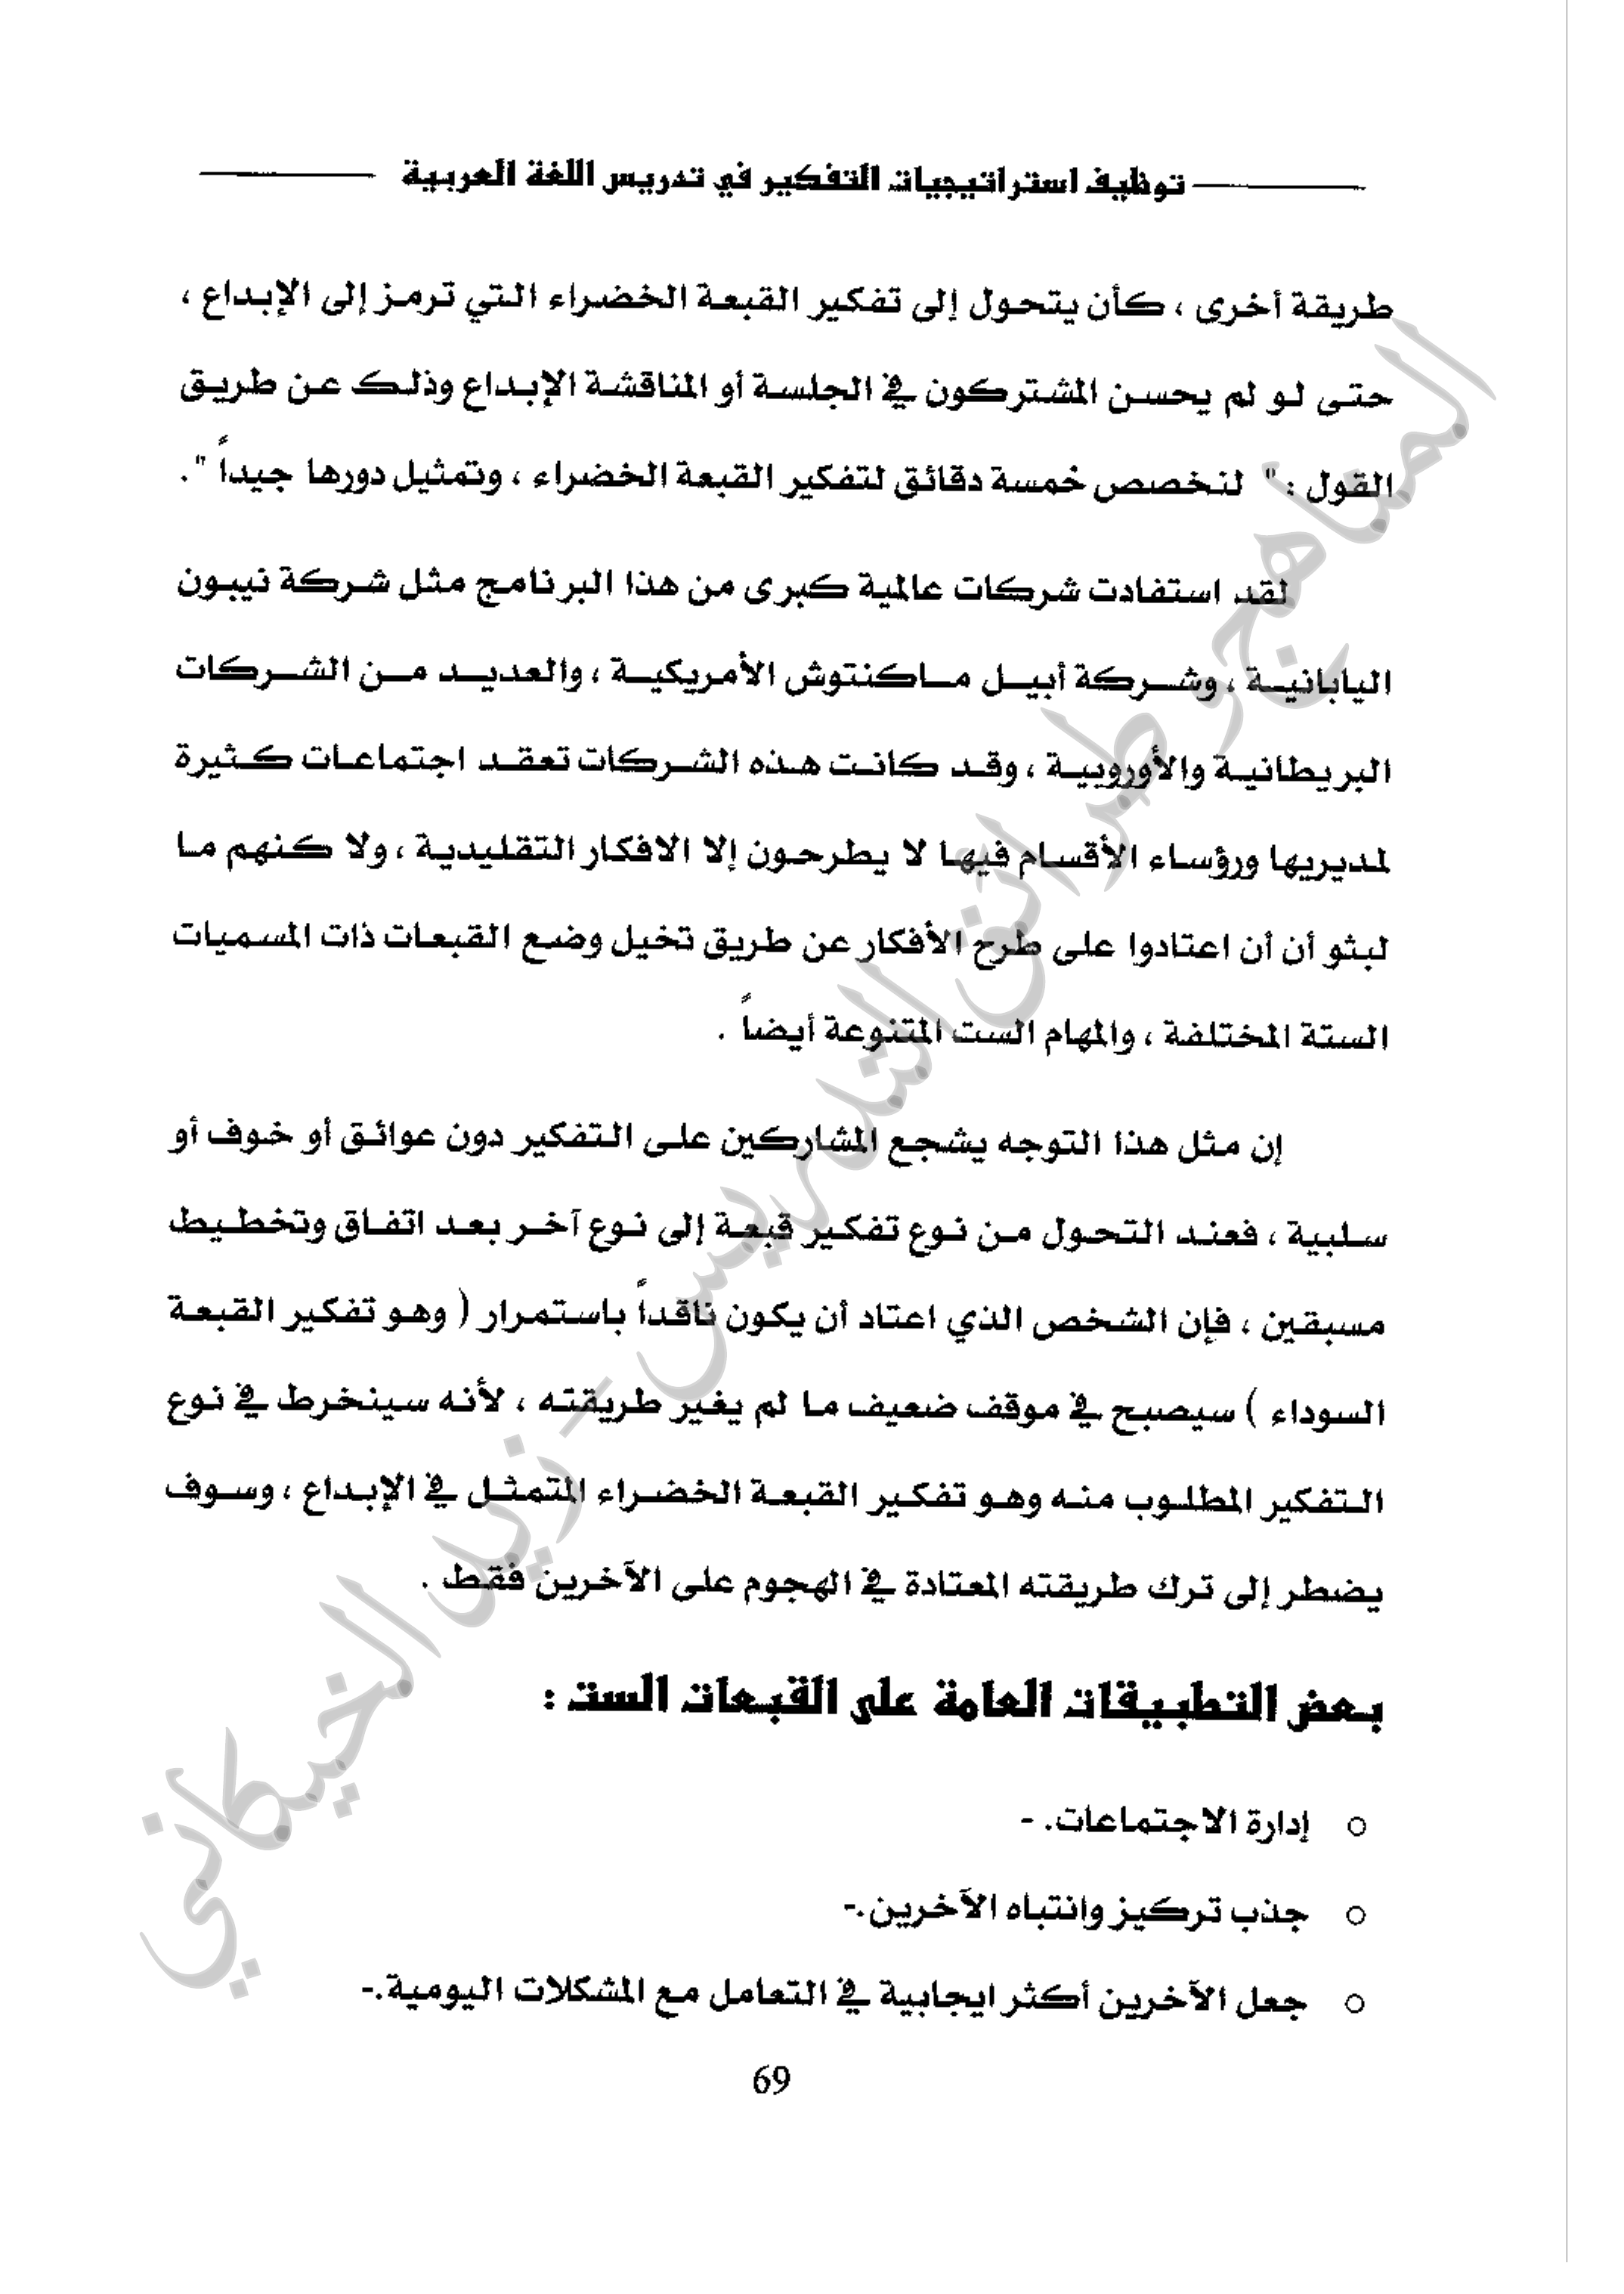 توظيف استراتيجيات التفكير في تدريس اللغة العربية
طريقة أخرى ، كأن يتحول إلى تفكير القبعة الخضراء التي ترمز إلى الإبداع ،
حتى لو لم يحسن المشتركون في الجلسة أو المناقشة الإبداع وذلك عن طريق
القول : " لنخصص خمسة دقائق لتفكير القبعة الخضراء ، وتمثيل دورها جيداً ".
لقد استفادت شركات عالمية كبرى من هذا البرنامج مثل شركة نيبون
اليابانية ، وشركة أبيل ماكنتوش الأمريكية ، والعديد من الشركات
البريطانية والأوروبية ، وقد كانت هذه الشركات تعقد اجتماعات كثيرة
لمديريها ورؤساء الأقسام فيها لا يطرحون إلا الافكار التقليدية ، ولا كنهم ما
لبثو أن أن اعتادوا على طرح الأفكار عن طريق تخيل وضع القبعات ذات المسميات
الستة المختلفة ، والمهام الست المتنوعة أيضاً .
إن مثل هذا التوجه يشجع المشاركين على التفكير دون عوائق أو خوف أو
سلبية ، فعند التحول من نوع تفكير قبعة إلى نوع آخر بعد اتفاق وتخطيط
مسبقين ، فإن الشخص الذي اعتاد أن يكون ناقداً باستمرار ( وهو تفكير القبعة
السوداء ) سيصبح في موقف ضعيف ما لم يغير طريقته ، لأنه سينخرط في نوع
التفكير المطلوب منه وهو تفكير القبعة الخضراء المتمثل في الإبداع ، وسوف
يضطر إلى ترك طريقته المعتادة في الهجوم على الآخرين فقط .
بعض التطبيقات العامة على القبعات الست :
○ إدارة الاجتماعات. -
○ جذب تركيز وانتباه الآخرين.-
○ جعل الآخرين أكثر ايجابية في التعامل مع المشكلات اليومية.-
69
المناهج وطرائق التدريس - زيد الخيكاني